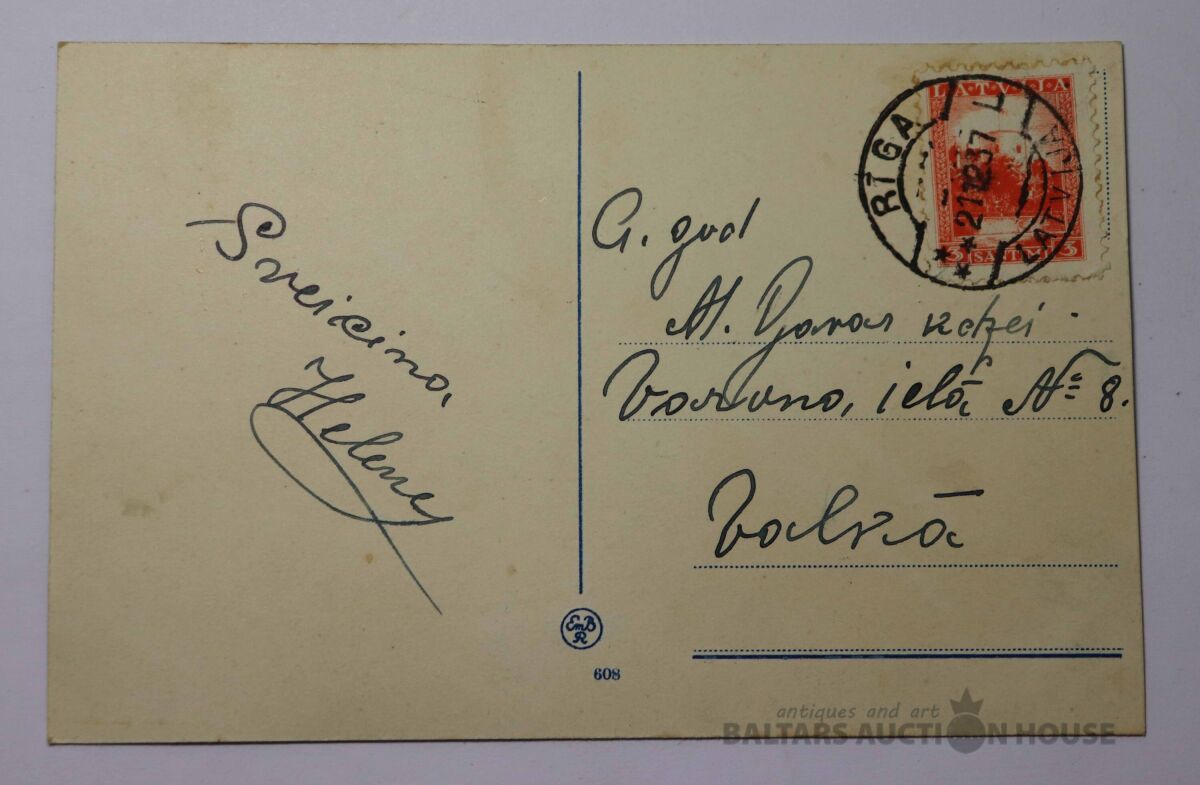 Sveicina,
Helene
RĪGA
LATVIJA
21 12 37
LATVIJA
3 SANTIMI 3
G. god
M. Garas kdzei
Varoņa, ielā № 8.
Valkā
EmB
R
608
antiques and art
BALTARS AUCTION HOUSE